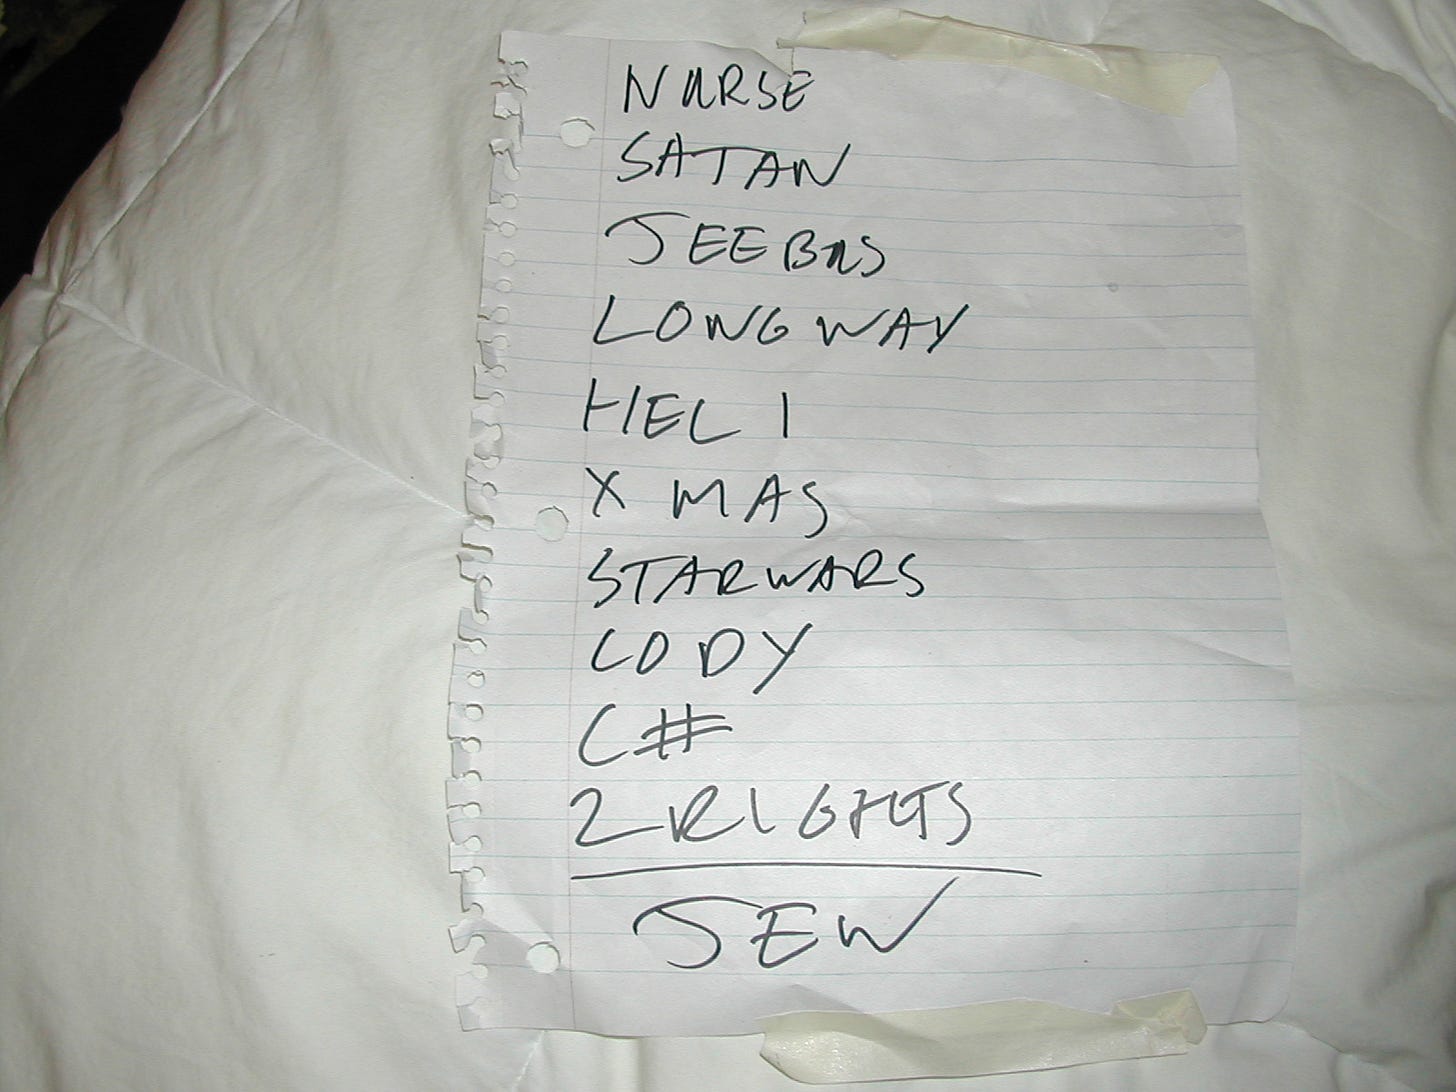 NURSE
SATAN
JEEBUS
LONGWAY
HELI
XMAS
STARWARS
CODY
C#
2 RIGHTS
JEW